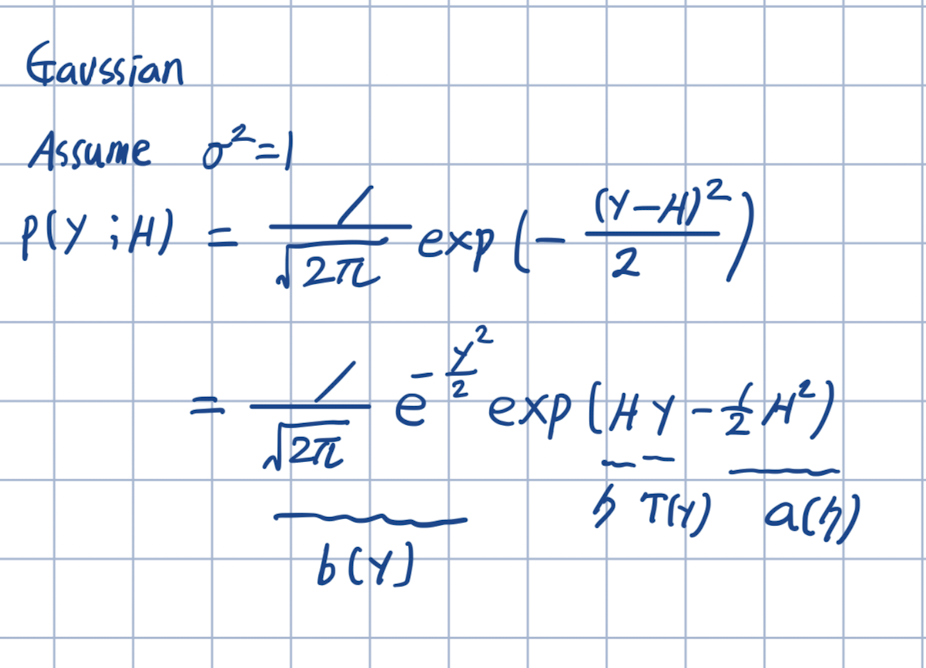 Gaussian
Assume σ²=1
p(Y;H) = 1/√2π exp(-(Y-H)²/2)
= 1/√2π e^(-Y²/2) exp(HY-½H²)
η T(Y) a(η)
b(Y)